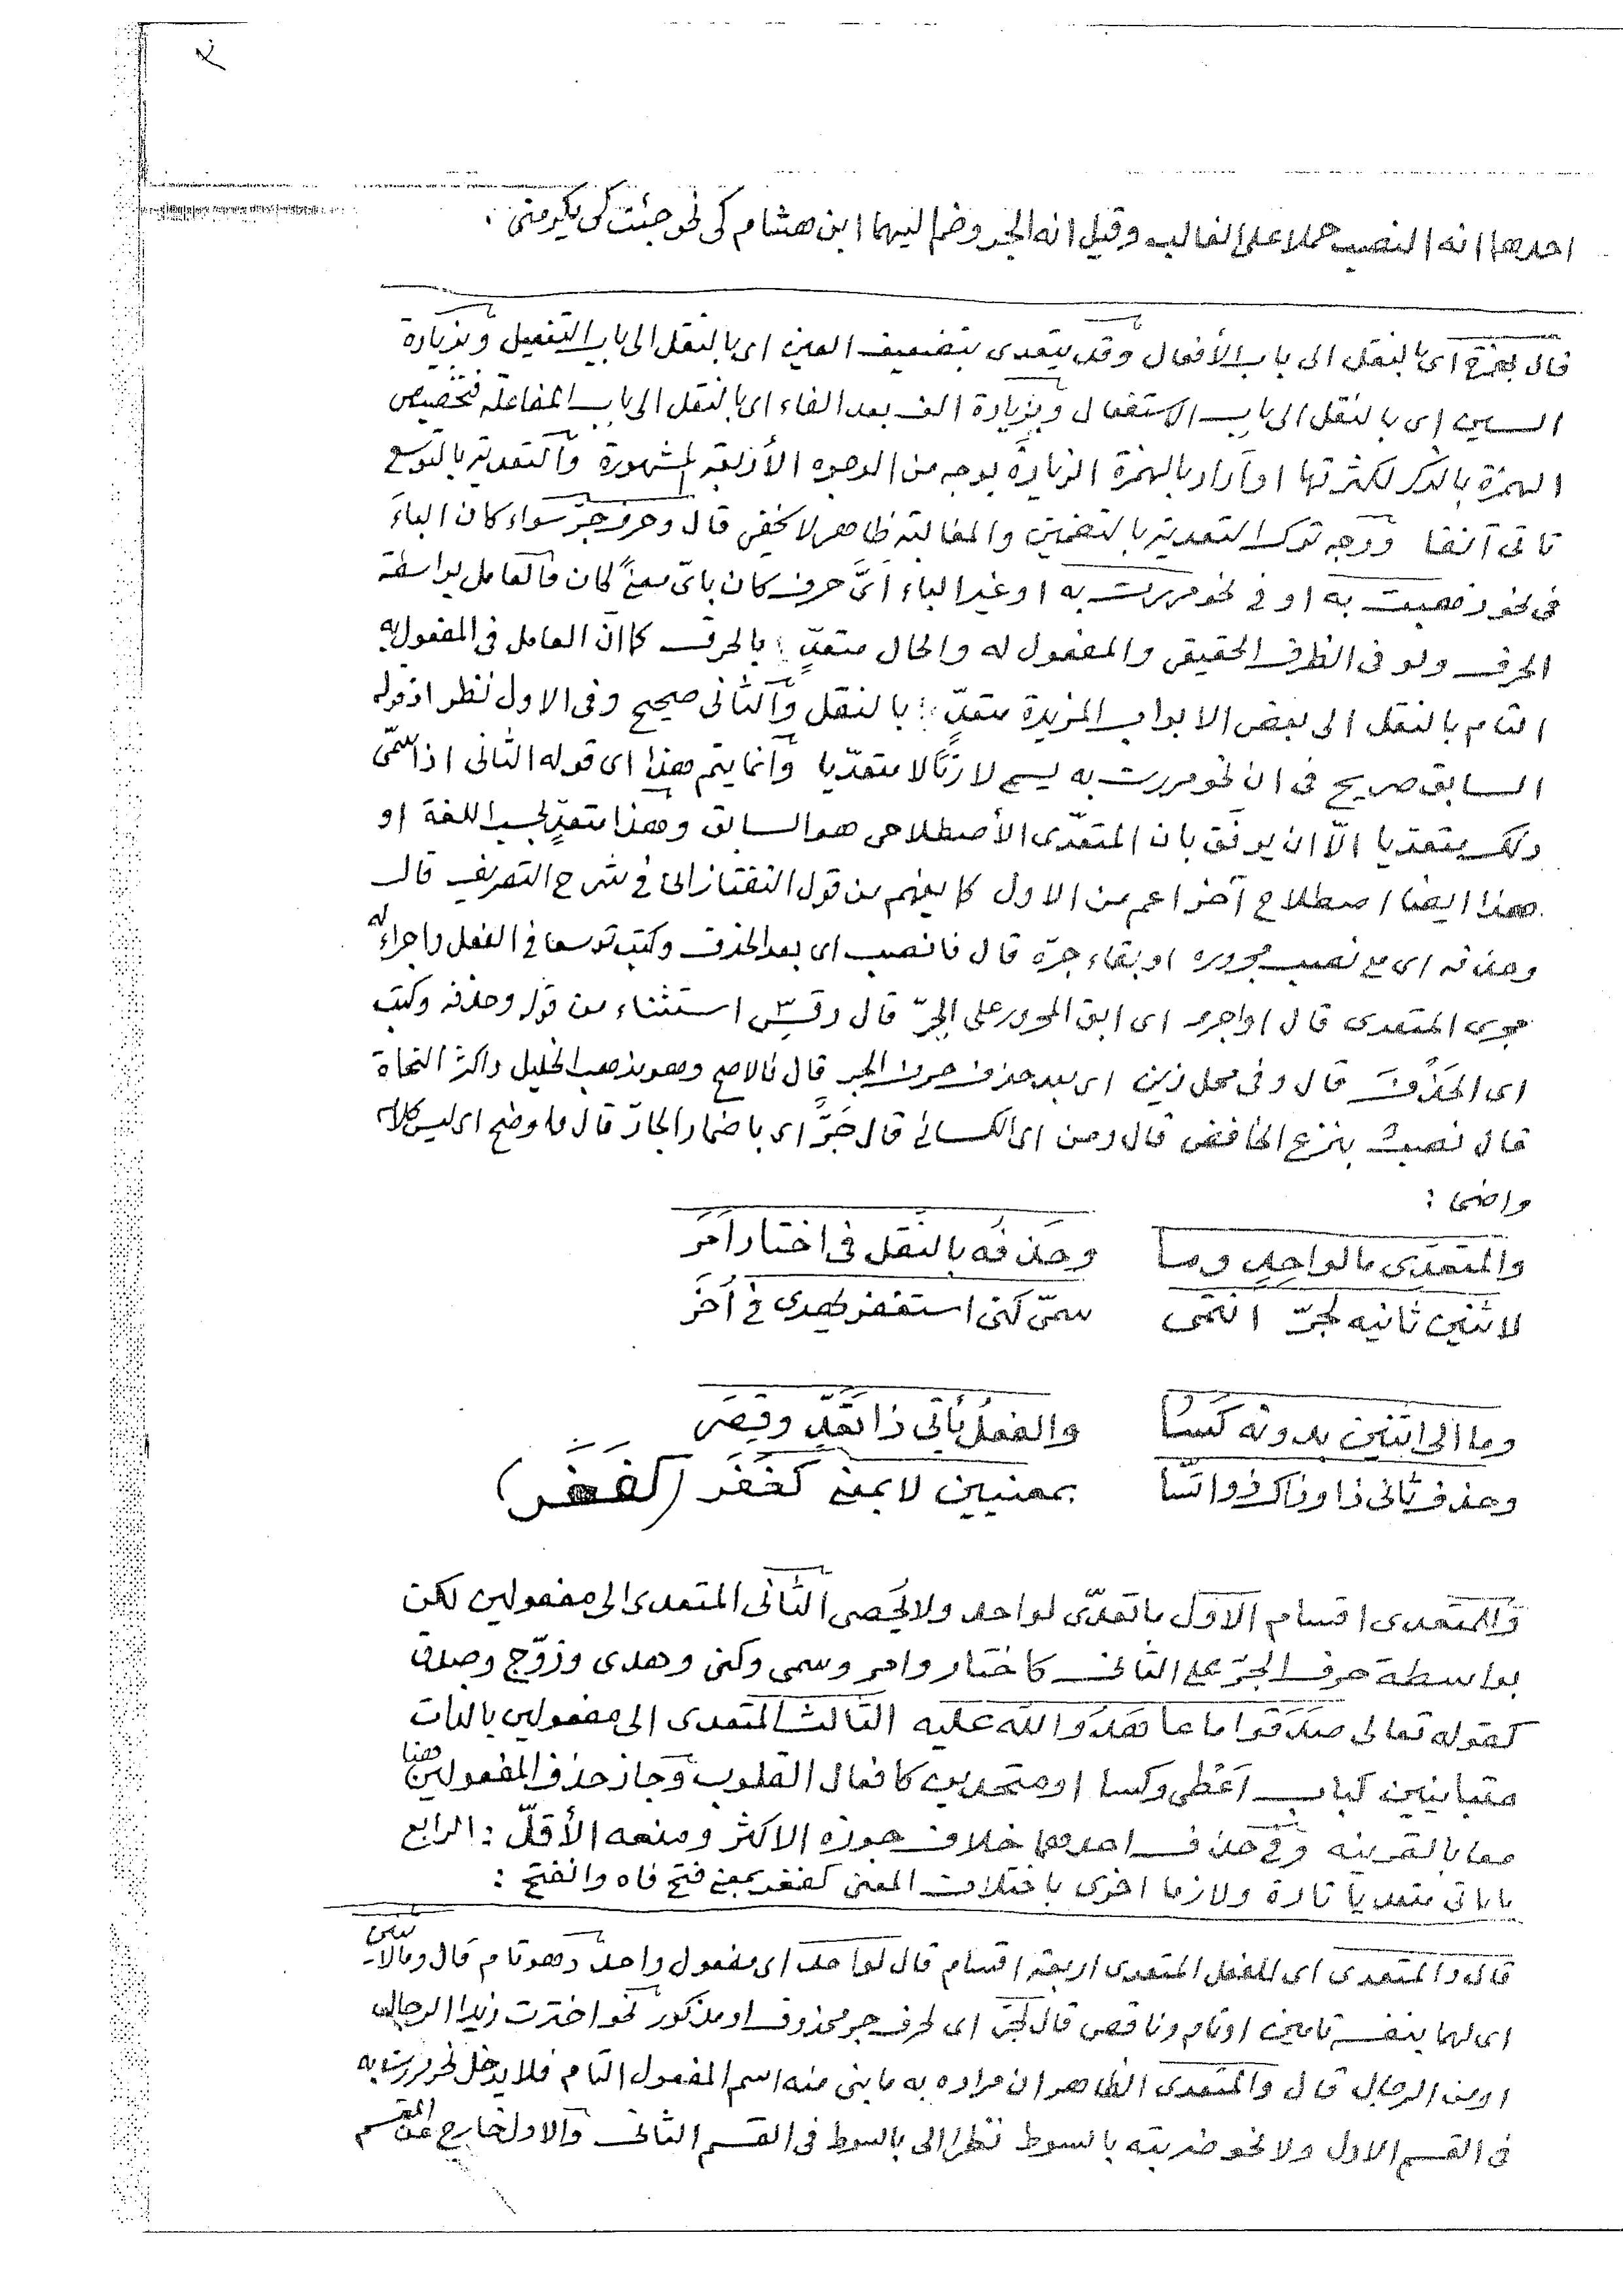 احدهما انه النصب حملا على الغالب وقيل انه الجر وضم اليهما ابن هشام كى نحو جئت كى يكرمنى .
قال بهمزة اى بالنقل الى باب الأفعال وقد يتعدى بتضعيف العين اى بالنقل الى باب التفعيل وبزيادة
السين اى بالنقل الى باب الاستفعال وبزيادة الف بعد الفاء اى بالنقل الى باب المفاعلة فتخصيص
الهمزة بالذكر لكثرتها او اراد بالهمزة الزيادة بوجه من الوجوه الأربعة المشهورة والتعدية بالتوسع
تاتى آنفا ووجه ترك التعدية بالتضمين والمغالبة ظاهر لا يخفى قال وحرف جرّ سواء كان الباء
فى نحو ذهبت به او فى نحو مررت به او غير الباء اىّ حرف كان باىّ معنىً كان فالعامل بواسطة
الحرف ولو فى الظرف الحقيقى والمفعول له والحال متعدٍّ بالحرف كما انّ العامل فى المفعول به
التام بالنقل الى بعض الابواب المزيدة متعدٍّ بالنقل والثانى صحيح وفى الاول نظر اذ قوله
السابق صريح فى ان نحو مررت به يسمى لازمًا لا متعدّيا وانما يتم هذا اى قوله الثانى اذا سمّى
ذلك متعديا الّا ان يوفّق بان المتعدّى الأصطلاحى هو السابق وهذا متعدٍّ بحسب اللغة او
هذا ايضا اصطلاح آخر اعم من الاول كما يفهم من قول التفتازانى فى شرح التصريف قال
وحذفه اى مع نصب مجروره او بقاء جرّه قال فانصب اى بعد الحذف وكتب توسعا فى الفعل واجراء له
مجرى المتعدى قال او اجرر اى ابق المجرور على الجرّ قال وقس استثناء من قوله وحذفه وكتب
اى الحذف قال وفى محل زين اى بعد حذف حرف الجر قال فالاصح وهو مذهب الخليل واكثر النحاة
قال نصب بنزع الخافض قال ومن اى الكسائى قال جرّ اى باضمار الجارّ قال ما وضح اى ليس كلامه
واضحى :
والمتعدّى ما لواحدٍ وما وحذفه بالنقل فى اختار امر
لاثنين ثانيه بجرّ انتمى سمّى كنى استغفر يهدى فى أخر
وما الى اثنين بدونه كسا والفعل يأتى ذا تعدٍّ وقصر
وحذف ثانى ذا وذاك ذو ائتسا بمعنيين لا بمعنى كفغر (كفغر)
والمتعدى اقسام الاول ما تعدّى لواحد ولا يحصى الثانى المتعدى الى مفعولين لكن
بواسطة حرف الجرّ على الثانى كاختار وامر وسمى وكنى وهدى وزوّج وصدق
كقوله تعالى صدقوا ما عاهدوا الله عليه الثالث المتعدى الى مفعولين بالذات
متباينين كباب اعطى وكسا او متحدين كافعال القلوب وجاز حذف المفعولين هنا
معا بالقرينة وفى حذف احدهما خلاف جوزه الاكثر ومنعه الأقلّ : الرابع
ما ياتى متعديا تارة ولازما اخرى باختلاف المعنى كفغر بمعنى فتح فاه وانفتح :
قال والمتعدى اى للفعل المتعدى اربعة اقسام قال لواحد اى مفعول واحد وهو تام قال وما لاثنين
اى لهما بنفسه تامين او تام وناقص قال بجرّ اى بحرف جر محذوف او مذكور نحو اخترت زيدا الرجال
او من الرجال قال والمتعدى الظاهر ان مراده به ما بنى منه اسم المفعول التام فلا يدخل نحو مررت به
فى القسم الاول ولا نحو ضربته بالسوط نظرا الى بالسوط فى القسم الثانى والاول خارج عن المقسم